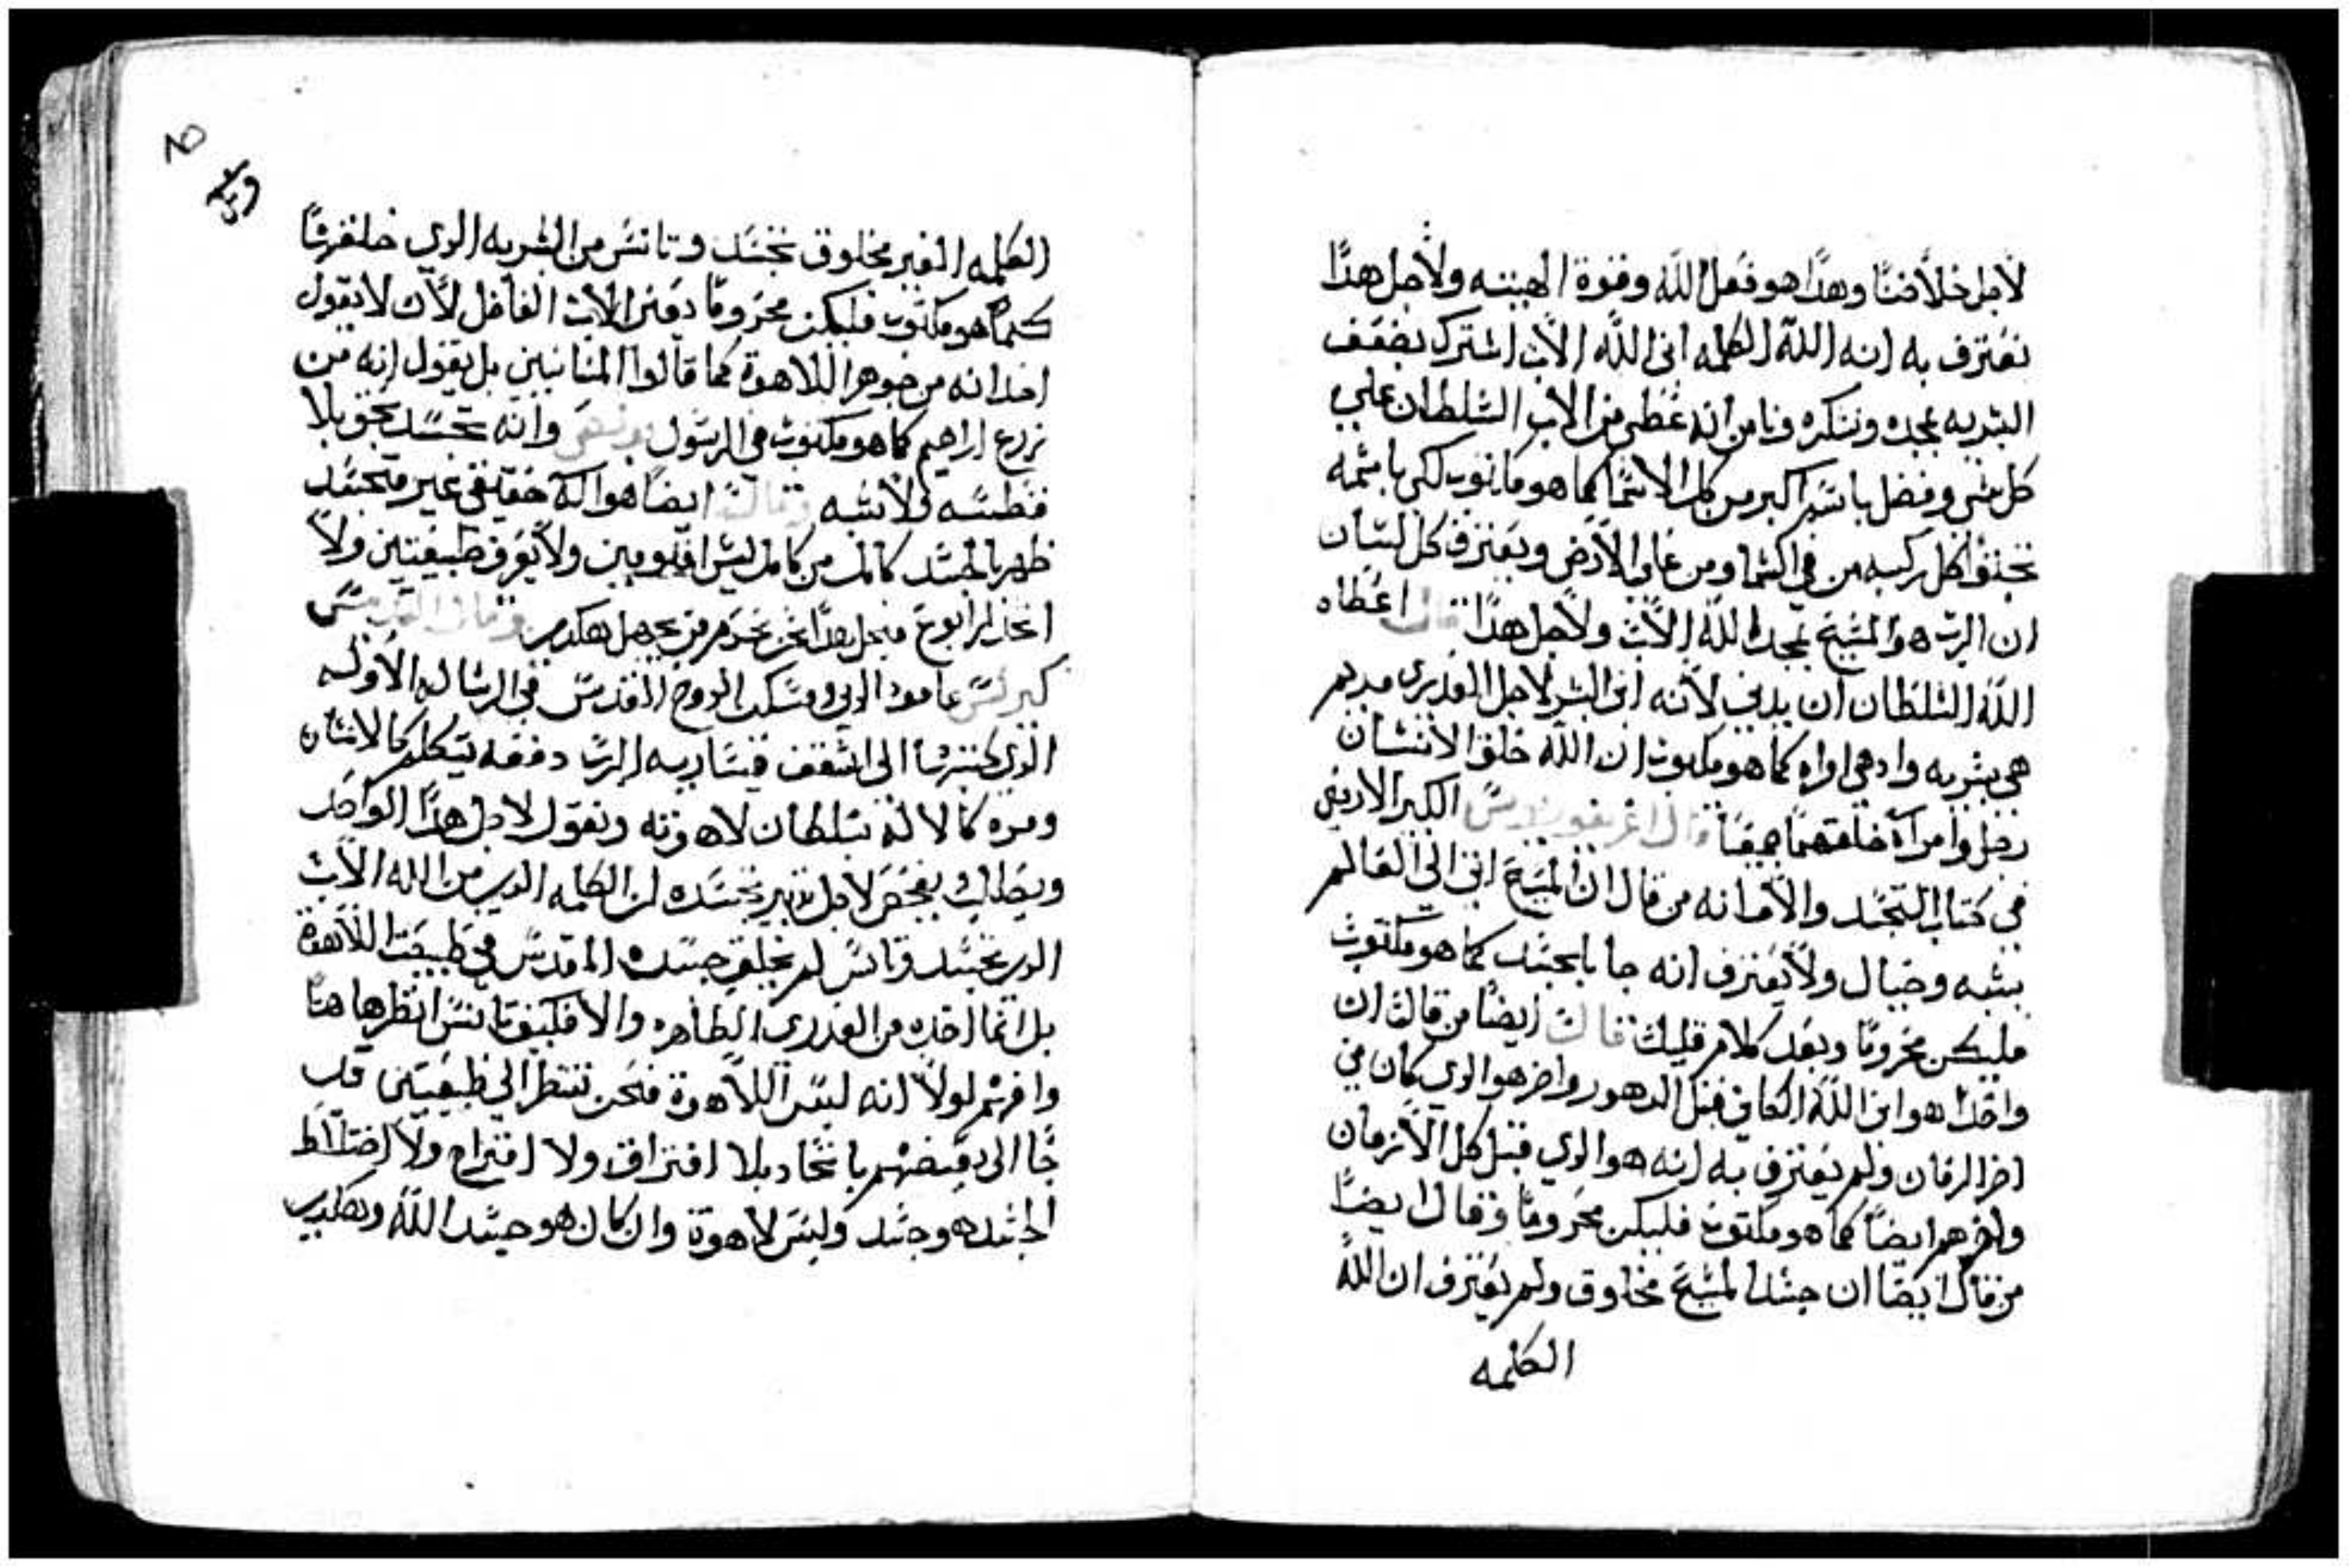 لاجل خلاصنا وهدا هو فعل الله وقوة الهيته ولاجل هدا
نعترف به انه الله الكلمه ابن الله الاب اشترك بضعف
البشريه بمجده وننكره ونامن انه عطى من الاب السلطان علي
كل شي وفضل باسم اكبر من كل الاسما كما هو مكتوب لكي باسمه
تجتوا كل ركبه من في السما ومن علي الارض ويعترف كل لسان
ان الرب هو المسيح بمجد الله الاب ولاجل هدا قال اعطاه
الله السلطان ان يدين لانه ابن البشر لاجل العدري مريم
هي بشريه وادهي امراه كما هو مكتوب ان الله خلق الانسان
رجل وامراة خلقهما جميعا قال اغريغوريوس الكبير الارمني
في كتاب التجسد والامانه من قال ان المسيح اتى الي العالم
بشبه وخيال ولا يعترف انه جا بالجسد كما هو مكتوب
فليكن محروما وبعد كلام قليل قال ايضا من قال ان
واحدا هو ابن الله الكاين قبل الدهور واخر هو الدي كان في
اخر الزمان ولم يعترف به انه هو الدي قبل كل الازمان
واخرهم ايضا كما هو مكتوب فليكن محروما وقال ايضا
من قال ايضا ان جسد المسيح مخلوق ولم يعترف ان الله
الكلمه
الكلمه الغير مخلوق تجسد وتانس من البشريه الدي خلقهتا
كما هو مكتوب فليكن محروما يعني الاب الفاضل لان لا يقول
احدا انه من جوهر اللاهوة كما قالوا المنانيين بل يقول انه من
زرع ابراهيم كما هو مكتوب في الرسول وانه تجسد بحق بلا
فنطسه ولا شبه وقال ايضا هو اله حقيقي غير متجسد
ظهر بالجسد كامل من كامل ليس اقنومين ولا يعرف طبيعتين ولا
نحن نحرم من يجهل هكدا وقال القديس
كيرلس عامود الدين ومسكن الروح المقدس في الرساله الاوله
الدي كتبها الى اسقف قيساريه الرب دفعه يتكلم كالانسان
ومره كالاله بسلطان لاهوته ونقول لاجل هدا الواحد
ويطالب بفحص لاجل تدبير تجسده ان الكلمه الدي من الله الاب
الدي تجسد وتانس لم يخلق جسده المقدس في طبيعة اللاهوة
بل انما اخده من العدري الطاهره والا فكيف تانس انظرها هنا
وافهم لولا انه لبس اللاهوة فنحن ننظر الي طبيعتين قد
جا الى بعضهم باتحاد بلا افتراق ولا امتزاج ولا اختلاط
الجسد هو جسد وليس لاهوة وان كان هو جسد الله وهكدي